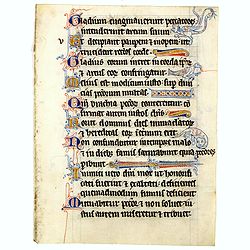 Gladium euaginauerunt peccatores
intenderunt arcum suum
Ut decipiant pauperem et inopem ut
trucident rectos corde
Gladius eorum intret in corda ipsorum
et arcus eorum confringatur
Melius est modicum iusto super diui
cias peccatorum multas
Quoniam brachia peccatorum conterentur con
firmat autem iustos dominus
Nouit dominus dies
et hereditas eorum in eternum erit
Non confundentur in tempore malo
et in diebus famis saturabuntur quia peccatores
peribunt
Inimici uero domini mox ut honorifi
cati fuerint et exaltati deficientes
quemadmodum fumus deficient
Mutuabitur peccator et non soluet iu
stus autem miseretur et tribuet